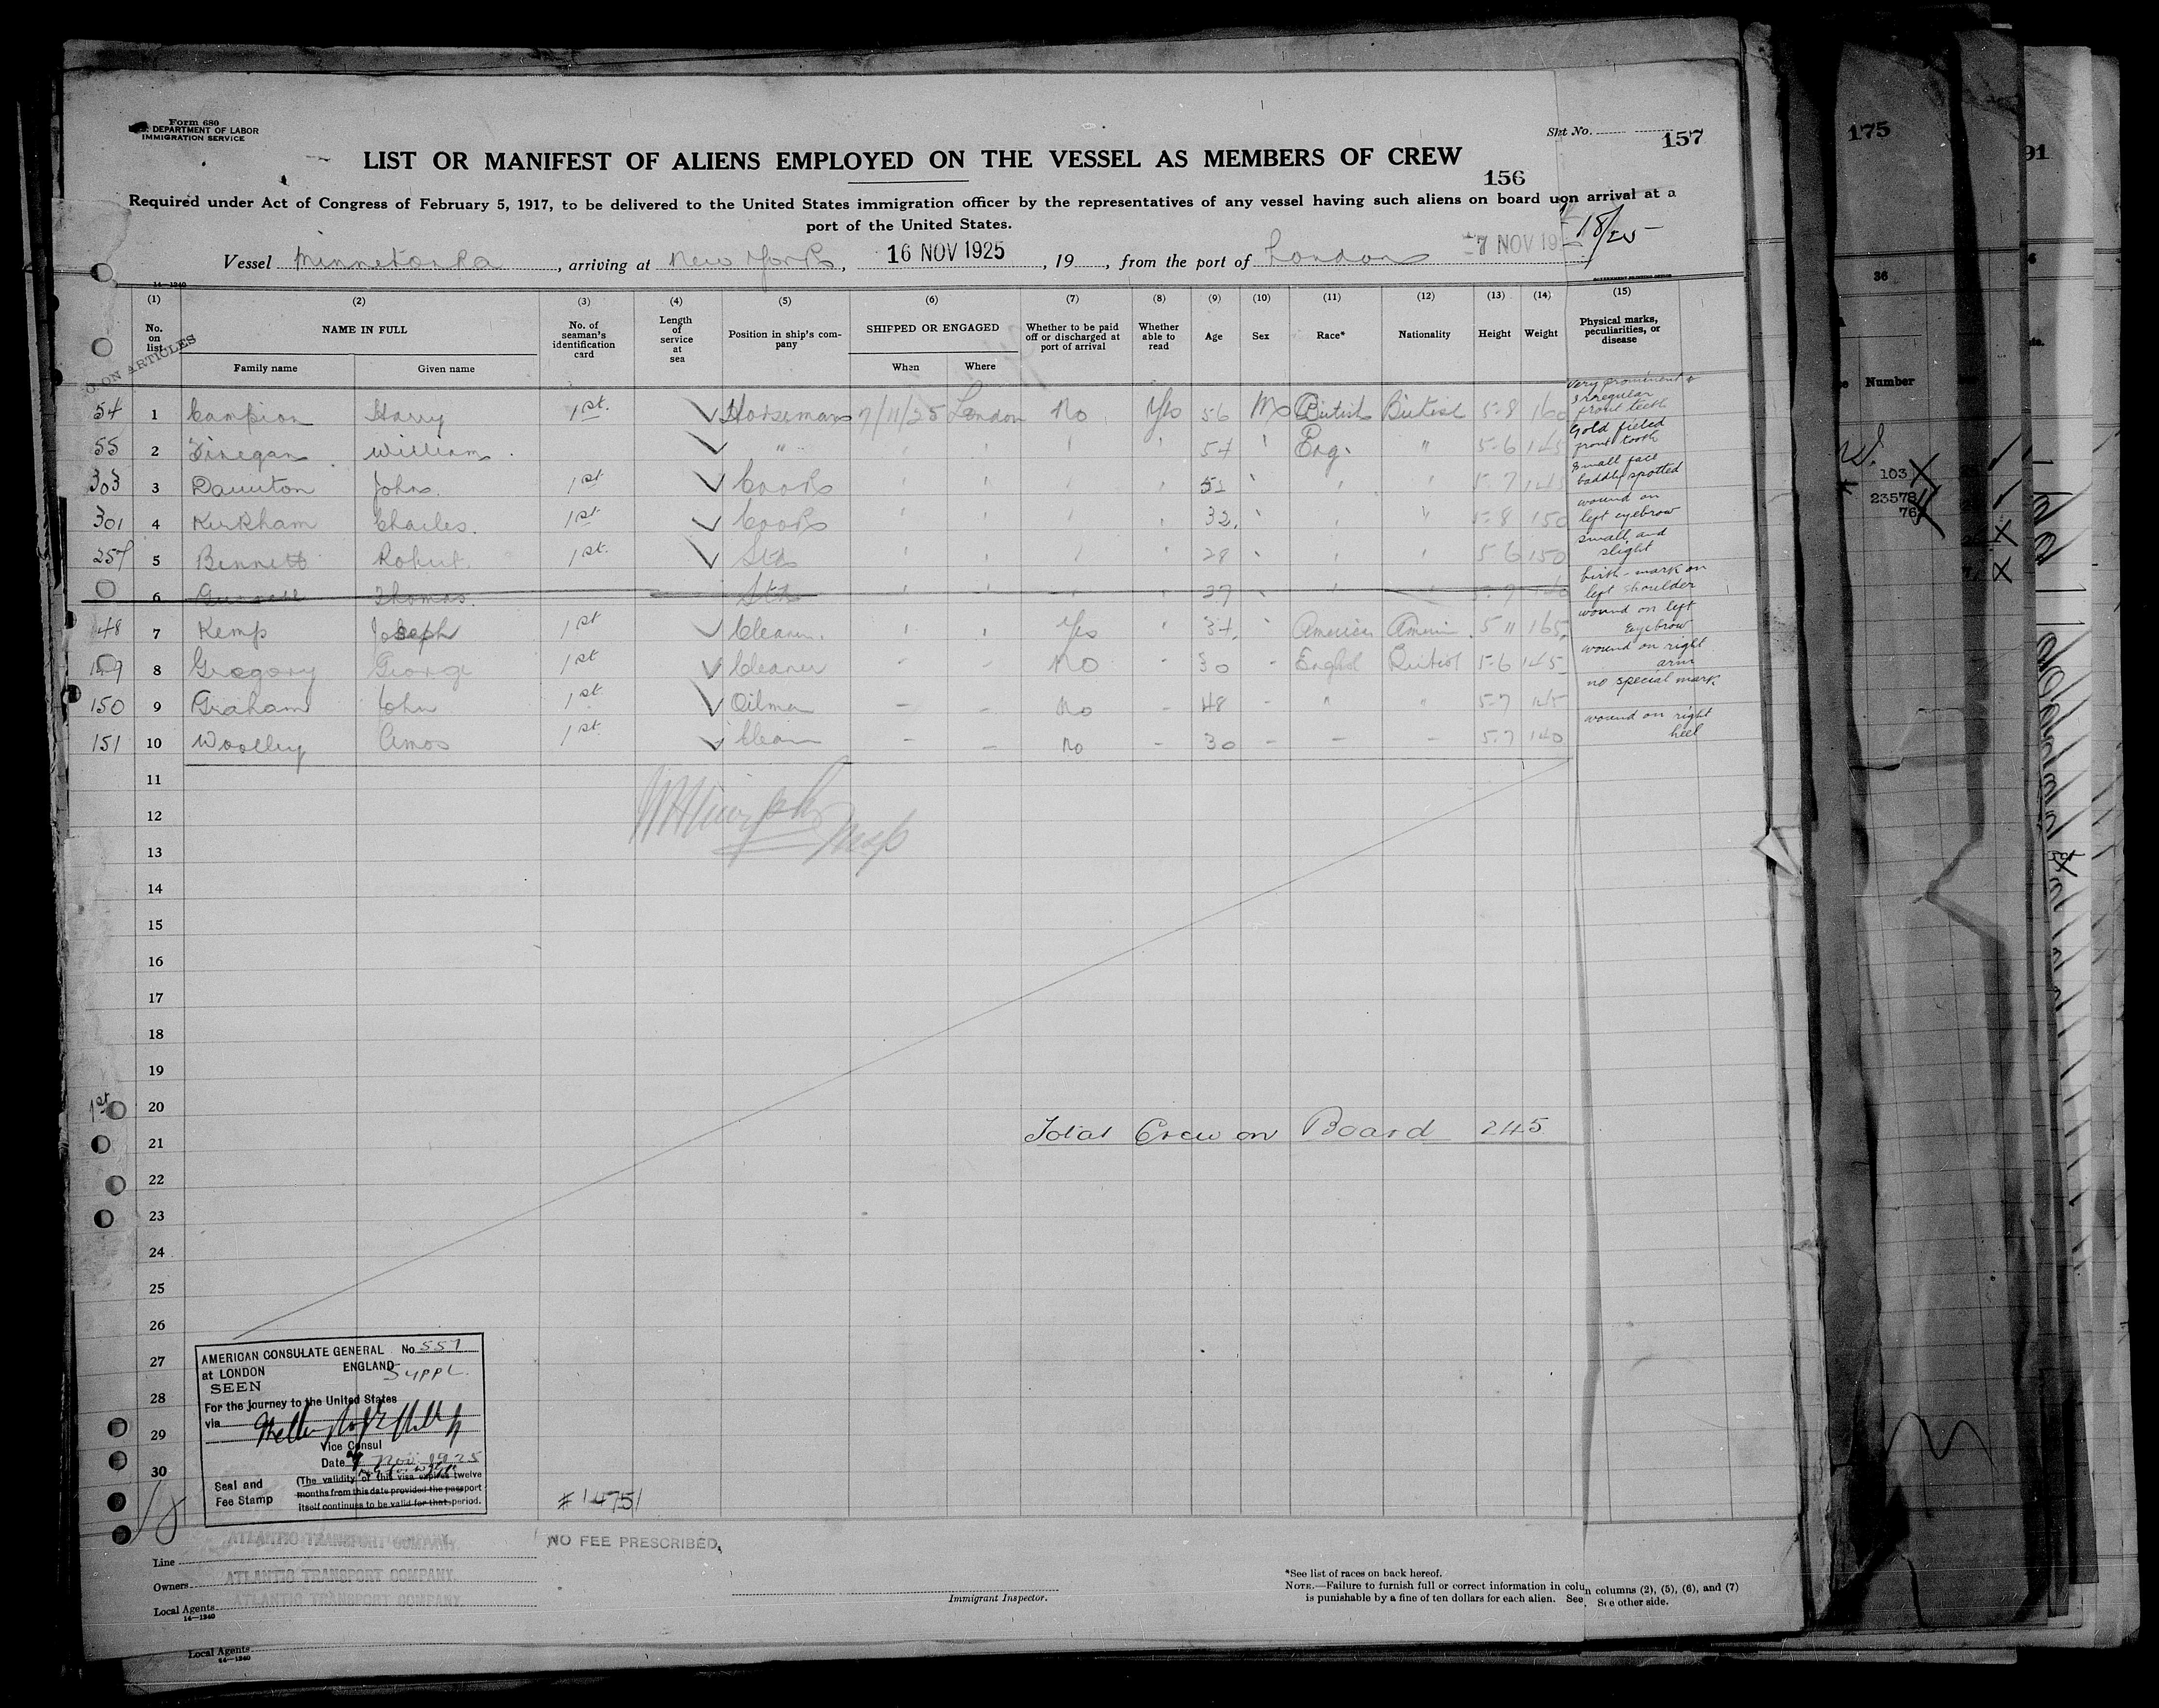 Form 680
U.S. DEPARTMENT OF LABOR
IMMIGRATION SERVICE
Sht No.
157
LIST OR MANIFEST OF ALIENS EMPLOYED ON THE VESSEL AS MEMBERS OF CREW
156
Required under Act of Congress of February 5, 1917, to be delivered to the United States immigration officer by the representatives of any vessel having such aliens on board upon arrival at a
port of the United States.
Vessel Minnetonka, arriving at New York, 16 NOV 1925, 19, from the port of London 7 NOV 19
14-1240
(1) (2) (3) (4) (5) (6) (7) (8) (9) (10) (11) (12) (13) (14) (15)
No. on list NAME IN FULL No. of seaman's identification card Length of service at sea Position in ship's company SHIPPED OR ENGAGED Whether to be paid off or discharged at port of arrival Whether able to read Age Sex Race* Nationality Height Weight Physical marks, peculiarities, or disease
Family name Given name When Where
ON ARTICLES
54 1 Campion Harry 1st Horseman 7/11/25 London No Yes 56 M British British 5-8 160 Very prominent & irregular front teeth
55 2 Finegan William " 54 Eng. " 5-6 145 Gold filled front tooth
303 3 Daunton John 1st Cook 52 5-7 145 Small face baddly spotted
301 4 Kirkham Charles. 1st Cook 32. " 5-8 150 wound on left eyebrow
257 5 Bennett Robert. 1st. Std 28 5 6 150 small and slight
6 Thomas. Std 37 5-7 birth-mark on left shoulder
148 7 Kemp Joseph 1st Cleaner. Yes 34. American Americ. 5 11 165 wound on left Eyebrow
149 8 Gregory George 1st Cleaner - - No - 30 - English British 5-6 145 wound on right arm
150 9 Graham John 1st Oilman - - No - 48 - " " 5-7 145 no special mark
151 10 Woolley Amos 1st. Clean - - No - 30 - - - 5.7 140 wound on right heel
11
12
13
14
15
16
17
18
19
1st 20
21 Total Crew on Board 245
22
23
24
25
26
27
28
29
30
AMERICAN CONSULATE GENERAL No 557
at LONDON ENGLAND Suppl.
SEEN
For the journey to the United States
via
Vice Consul
Date 7 Nov. 1925
Seal and Fee Stamp
(The validity of this visa expires twelve
months from this date provided the passport
itself continues to be valid for that period.
# 14751
NO FEE PRESCRIBED.
Line ATLANTIC TRANSPORT COMPANY.
Owners ATLANTIC TRANSPORT COMPANY.
Local Agents ATLANTIC TRANSPORT COMPANY.
14-1240
Immigrant Inspector.
*See list of races on back hereof.
NOTE.—Failure to furnish full or correct information in colu n columns (2), (5), (6), and (7)
is punishable by a fine of ten dollars for each alien. See See other side.
Local Agents
14-1240
175
36
Number
103
23578
76
91